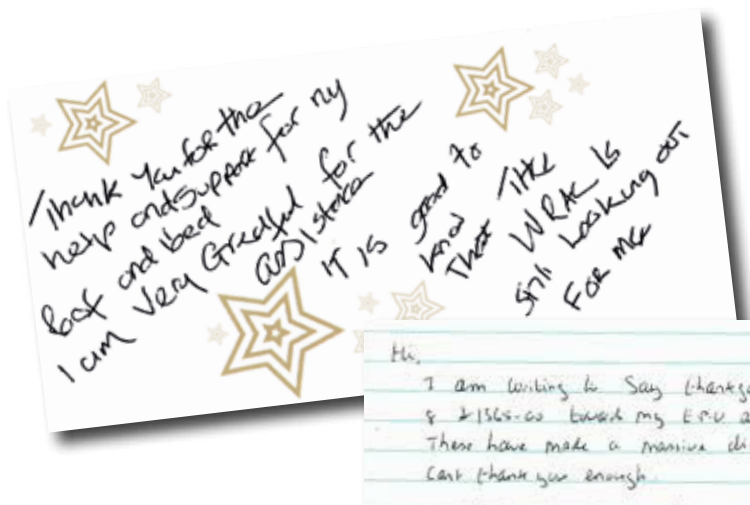 Thank You for the
help and support for my
and bed
I am Very Greatful for the
assistance
IT IS good to
know The
That WRAC Is
still Looking out
For me
Hi,
I am writing to Say thankyou
& £1565-00 towards my E.P.V a
These have made a massive di
Cant thank you enough.